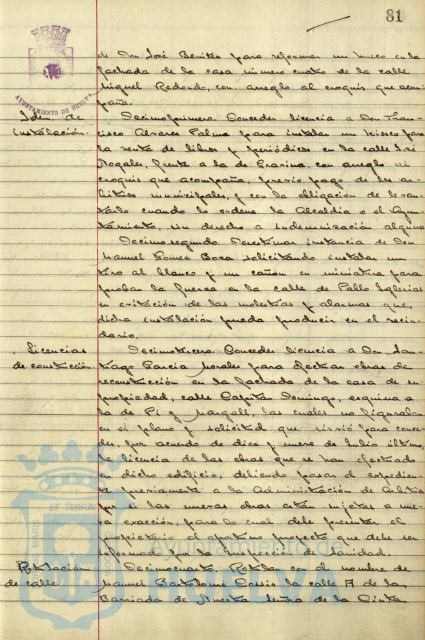 81
AYUNTAMIENTO DE HUELVA
de Don José Benitez para reformar un hueco en la
fachada de la casa número cuatro de la calle
Miguel Redondo, con arreglo al croquis que acom-
paña.
Idem de
instalación.
Decimoprimero. Conceder licencia a Don Fran-
cisco Alvarez Palma para instalar un kiosco para
la venta de libros y periódicos en la calle José
Nogales, frente a la de Gravina, con arreglo al
croquis que acompaña, previo pago de los ar-
bitrios municipales, y con la obligación de levan-
tarlo cuando lo ordene la Alcaldía o el Ayun-
tamiento, sin derecho a indemnización alguna
Decimosegundo. Desestimar instancia de Don
Manuel Gomez Bora solicitando instalar un
tiro al blanco y un cañón en miniatura para
probar la fuerza en la calle de Pablo Iglesias
en evitación de las molestias y alarmas que
dicha instalación pueda producir en el vecin-
dario.
Licencias
de construcción.
Decimotercero. Conceder licencia a Don San-
tiago Garcia Morales para efectuar obras de
reconstrucción en la fachada de la casa de su
propiedad, calle Capitán Domingo, esquina a
la de Pi y Margall, las cuales no figuraban
en el plano y solicitud que sirvió para conce-
der, por acuerdo de diez y nueve de Julio último,
la licencia de las obras que se han efectuado
en dicho edificio, debiendo pasar el expedien-
te previamente a la Administración de Arbitrios
por si las nuevas obras están sujetas a nue-
va exacción, para lo cual debe presentar el
propietario el oportuno proyecto que debe ser
informado por la Inspección de Sanidad.
Rotulación
de calle
Decimocuarto. Rotular con el nombre de
Manuel Bartolomé Cossio la calle A de la
Barriada de Nuestra Señora de la Cinta.
Ayuntamiento de
HUELVA